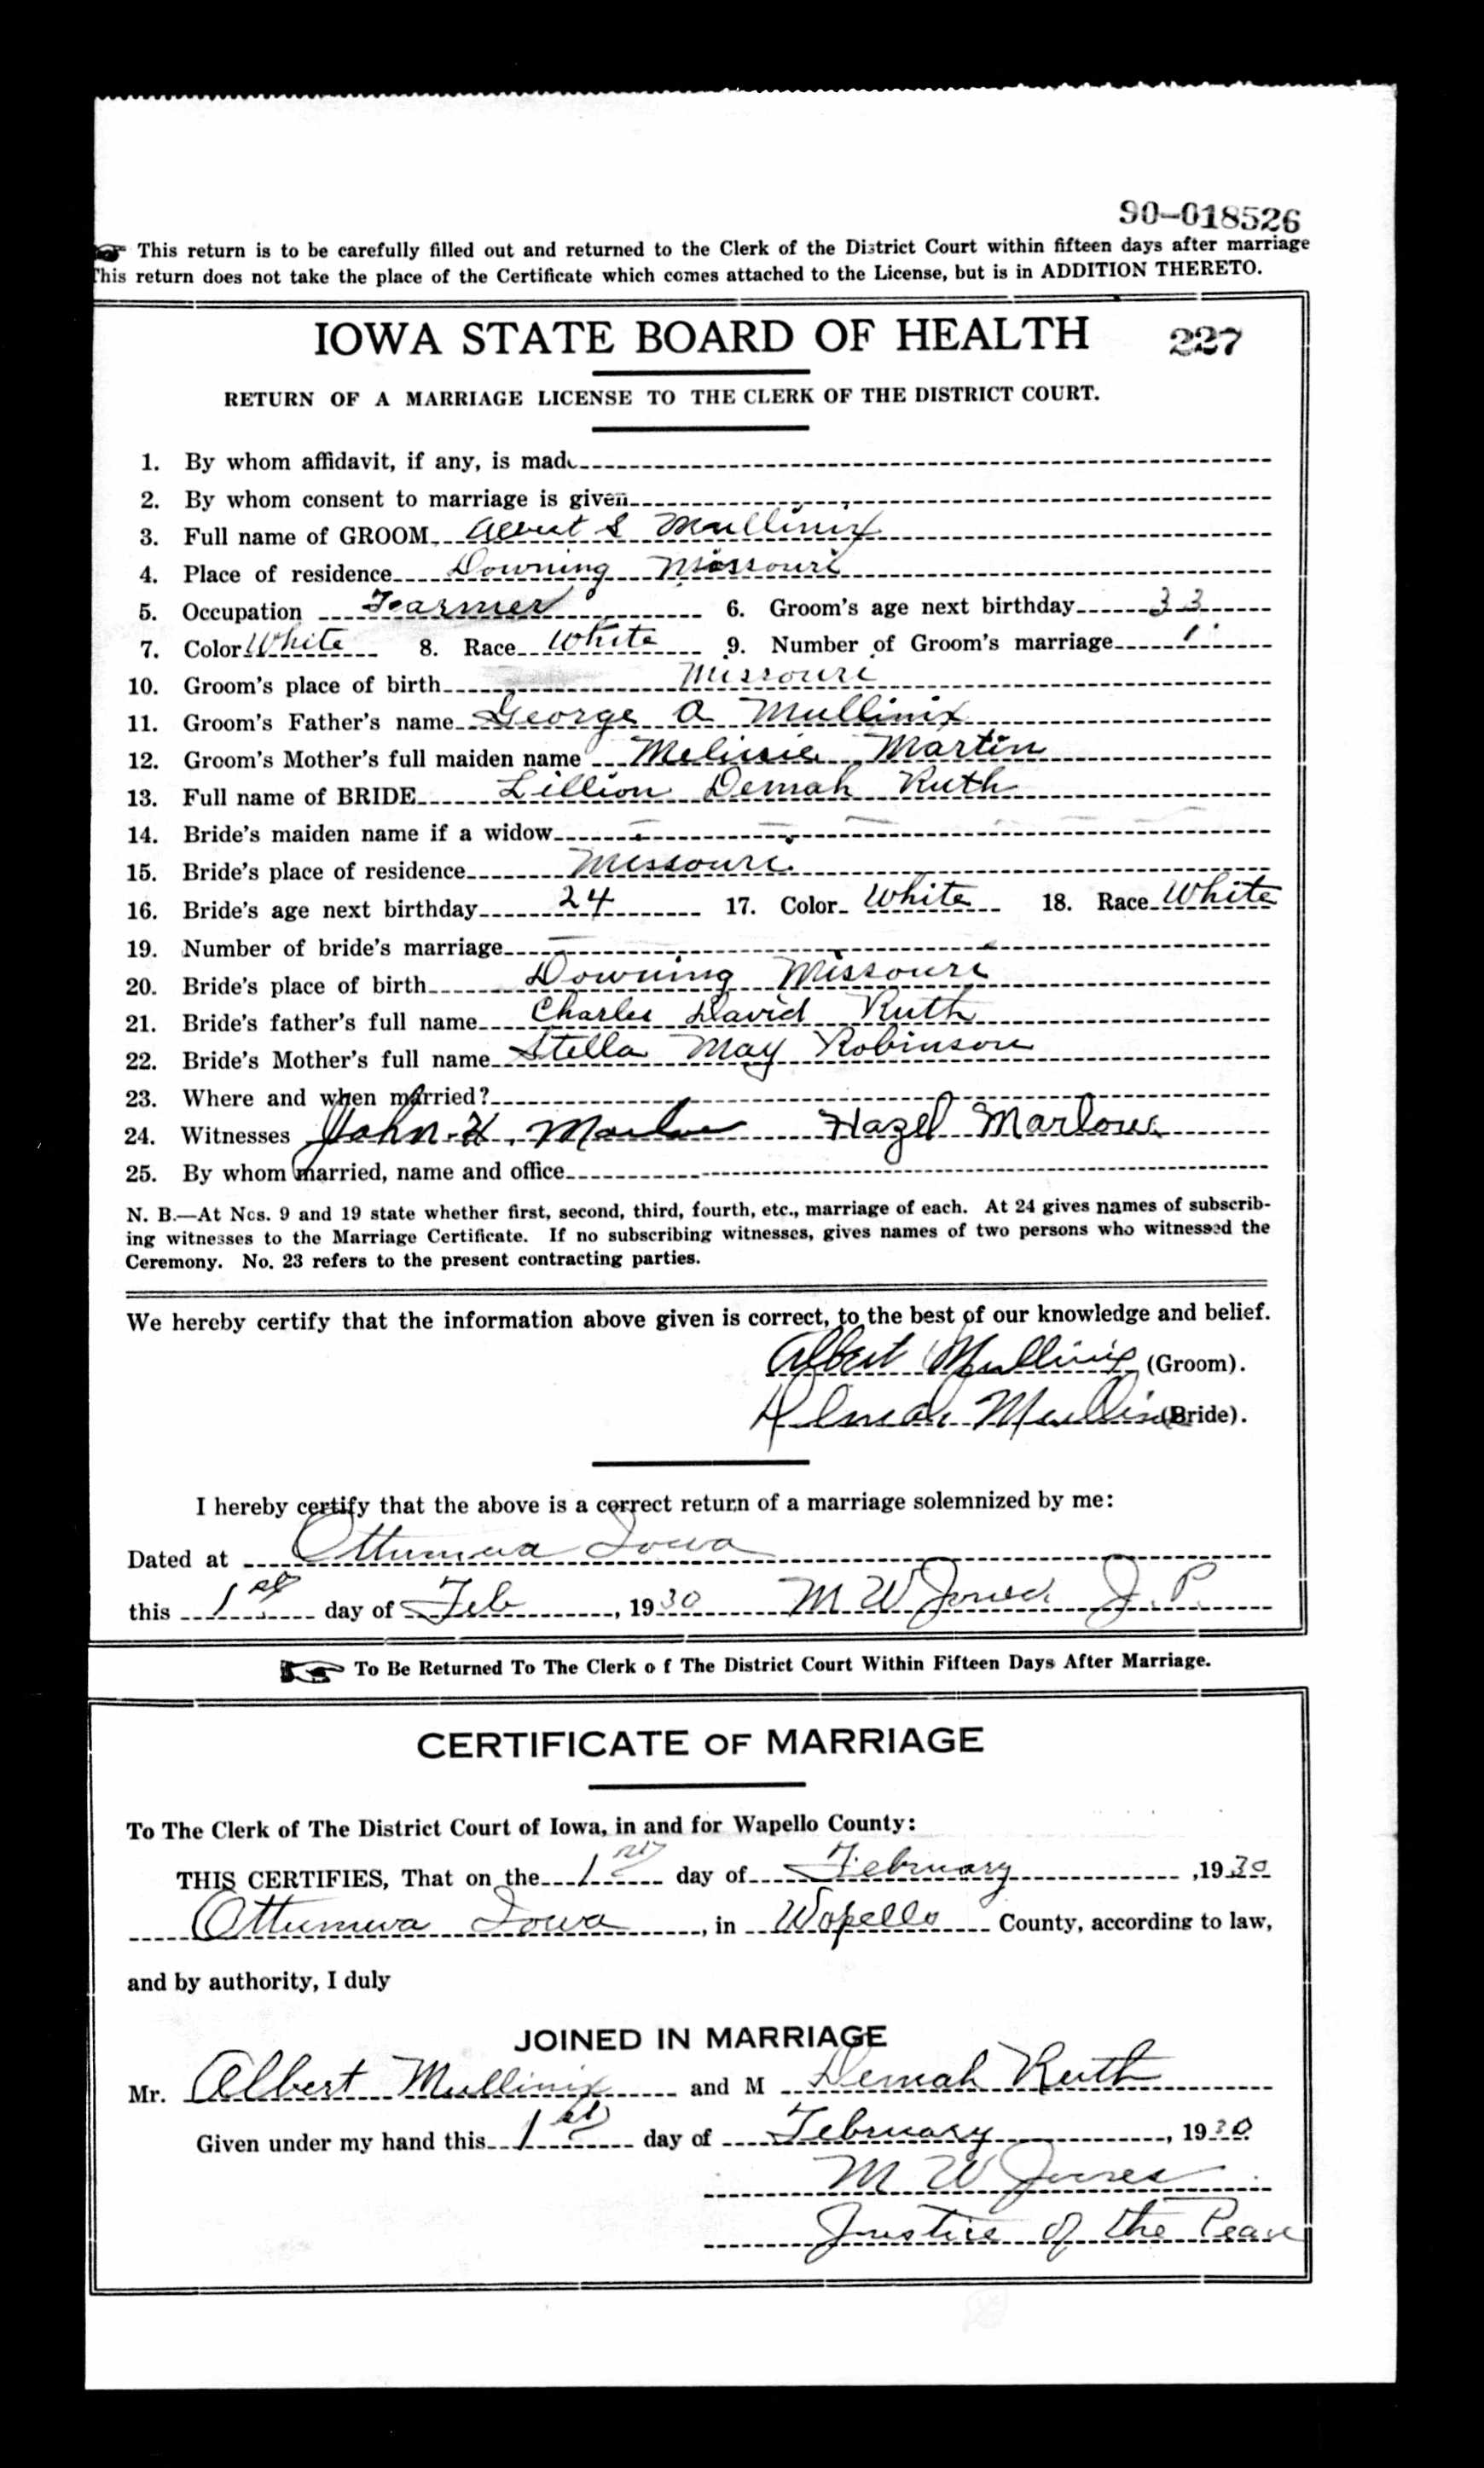 90-018526
This return is to be carefully filled out and returned to the Clerk of the District Court within fifteen days after marriage
This return does not take the place of the Certificate which comes attached to the License, but is in ADDITION THERETO.
IOWA STATE BOARD OF HEALTH 227
RETURN OF A MARRIAGE LICENSE TO THE CLERK OF THE DISTRICT COURT.
1. By whom affidavit, if any, is made
2. By whom consent to marriage is given
3. Full name of GROOM Albert S Mullinix
4. Place of residence Downing Missouri
5. Occupation Farmer 6. Groom's age next birthday 33
7. Color White 8. Race White 9. Number of Groom's marriage 1
10. Groom's place of birth Missouri
11. Groom's Father's name George A Mullinix
12. Groom's Mother's full maiden name Melissie Martin
13. Full name of BRIDE Lillion Demah Ruth
14. Bride's maiden name if a widow
15. Bride's place of residence Missouri
16. Bride's age next birthday 24 17. Color White 18. Race White
19. Number of bride's marriage
20. Bride's place of birth Downing Missouri
21. Bride's father's full name Charles David Ruth
22. Bride's Mother's full name Stella May Robinson
23. Where and when married?
24. Witnesses John H. Marlow Hazel Marlow
25. By whom married, name and office
N. B.—At Nos. 9 and 19 state whether first, second, third, fourth, etc., marriage of each. At 24 gives names of subscrib-
ing witnesses to the Marriage Certificate. If no subscribing witnesses, gives names of two persons who witnessed the
Ceremony. No. 23 refers to the present contracting parties.
We hereby certify that the information above given is correct, to the best of our knowledge and belief.
Albert Mullinix (Groom).
Demah Mullinix (Bride).
I hereby certify that the above is a correct return of a marriage solemnized by me:
Dated at Ottumwa Iowa
this 1st day of Feb, 1930 M W Jones J. P.
To Be Returned To The Clerk o f The District Court Within Fifteen Days After Marriage.
CERTIFICATE OF MARRIAGE
To The Clerk of The District Court of Iowa, in and for Wapello County:
THIS CERTIFIES, That on the 1st day of February, 1930
Ottumwa Iowa, in Wapello County, according to law,
and by authority, I duly
JOINED IN MARRIAGE
Mr. Albert Mullinix and M Demah Ruth
Given under my hand this 1st day of February, 1930
M W Jones
Justice of the Peace